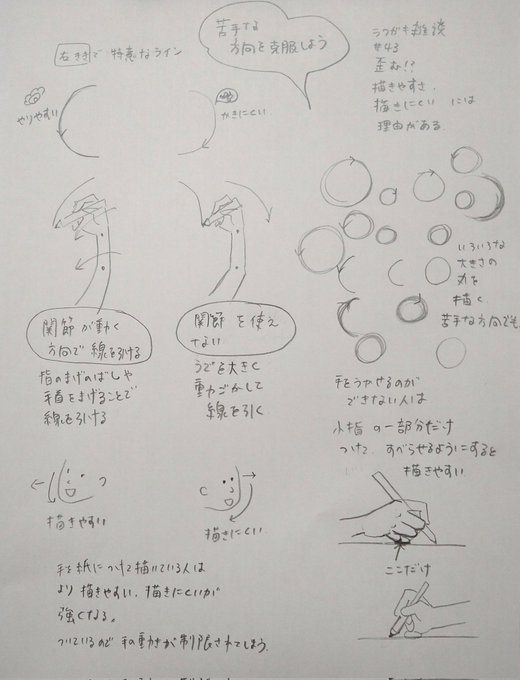 苦手な
方向を克服しよう
右ききで 得意なライン
やりやすい
かきにくい
らくがき雑談
#43
歪む!?
描きやすさ、
描きにくい には
理由がある。
関節が動く
方向で線を引ける
指のまげのばしや
手首をまげることで
線を引ける
関節 を使え
ない
うでを大きく
動かして
線を引く
いろいろな
大きさの
丸を
描く
苦手な方向でも
手をうかせるのが
できない人は
小指 の一部分だけ
つけて、すべらせるようにすると
描きやすい
描きやすい
描きにくい
ここだけ
手を紙につけて描いている人は
より 描きやすい、描きにくいが
強くなる。
ついているので 手の動きが制限されてしまう。